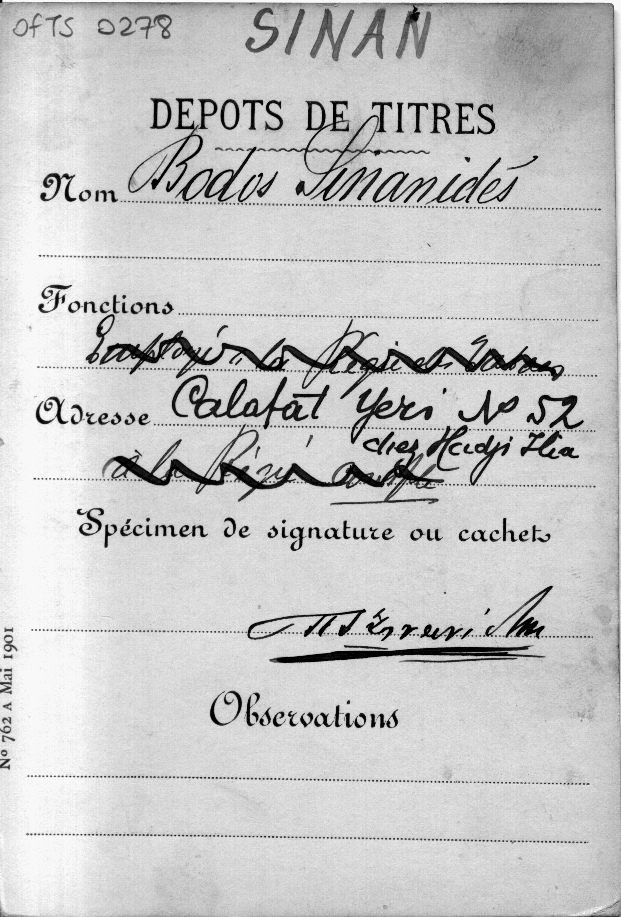 OFTS 0278
SINAN
DEPOTS DE TITRES
Nom Bodos Sinanidés
Fonctions
Employé à la Régie des Tabacs
Adresse Calafat Yeri Nº 52
chez Hadji Ilia
à la Régie
Spécimen de signature ou cachet
Observations
Nº 762 A Mai 1901